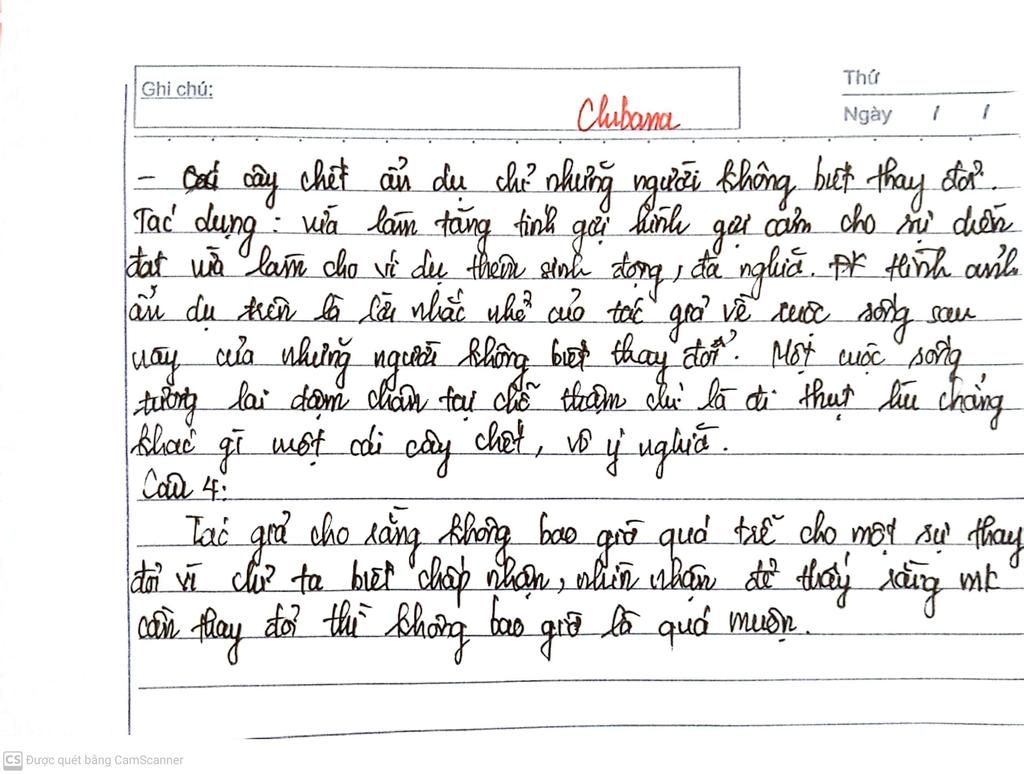 Ghi chú:
Chubana
Thứ
Ngày / /
- cây chết ẩn dụ chỉ những người không biết thay đổi.
Tác dụng: vừa làm tăng tính gợi hình gợi cảm cho sự diễn
đạt vừa làm cho ví dụ thêm sinh động, đa nghĩa. Hình ảnh
ẩn dụ trên là lời nhắc nhở của tác giả về cuộc sống sau
này của những người không biết thay đổi. Một cuộc sống
tương lai dậm chân tại chỗ thậm chí là đi thụt lùi chẳng
khác gì một cái cây chết, vô ý nghĩa.
Câu 4:
Tác giả cho rằng không bao giờ quá trễ cho một sự thay
đổi vì chỉ ta biết chấp nhận, nhìn nhận để thấy rằng mk
cần thay đổi thì không bao giờ là quá muộn.
CS Được quét bằng CamScanner